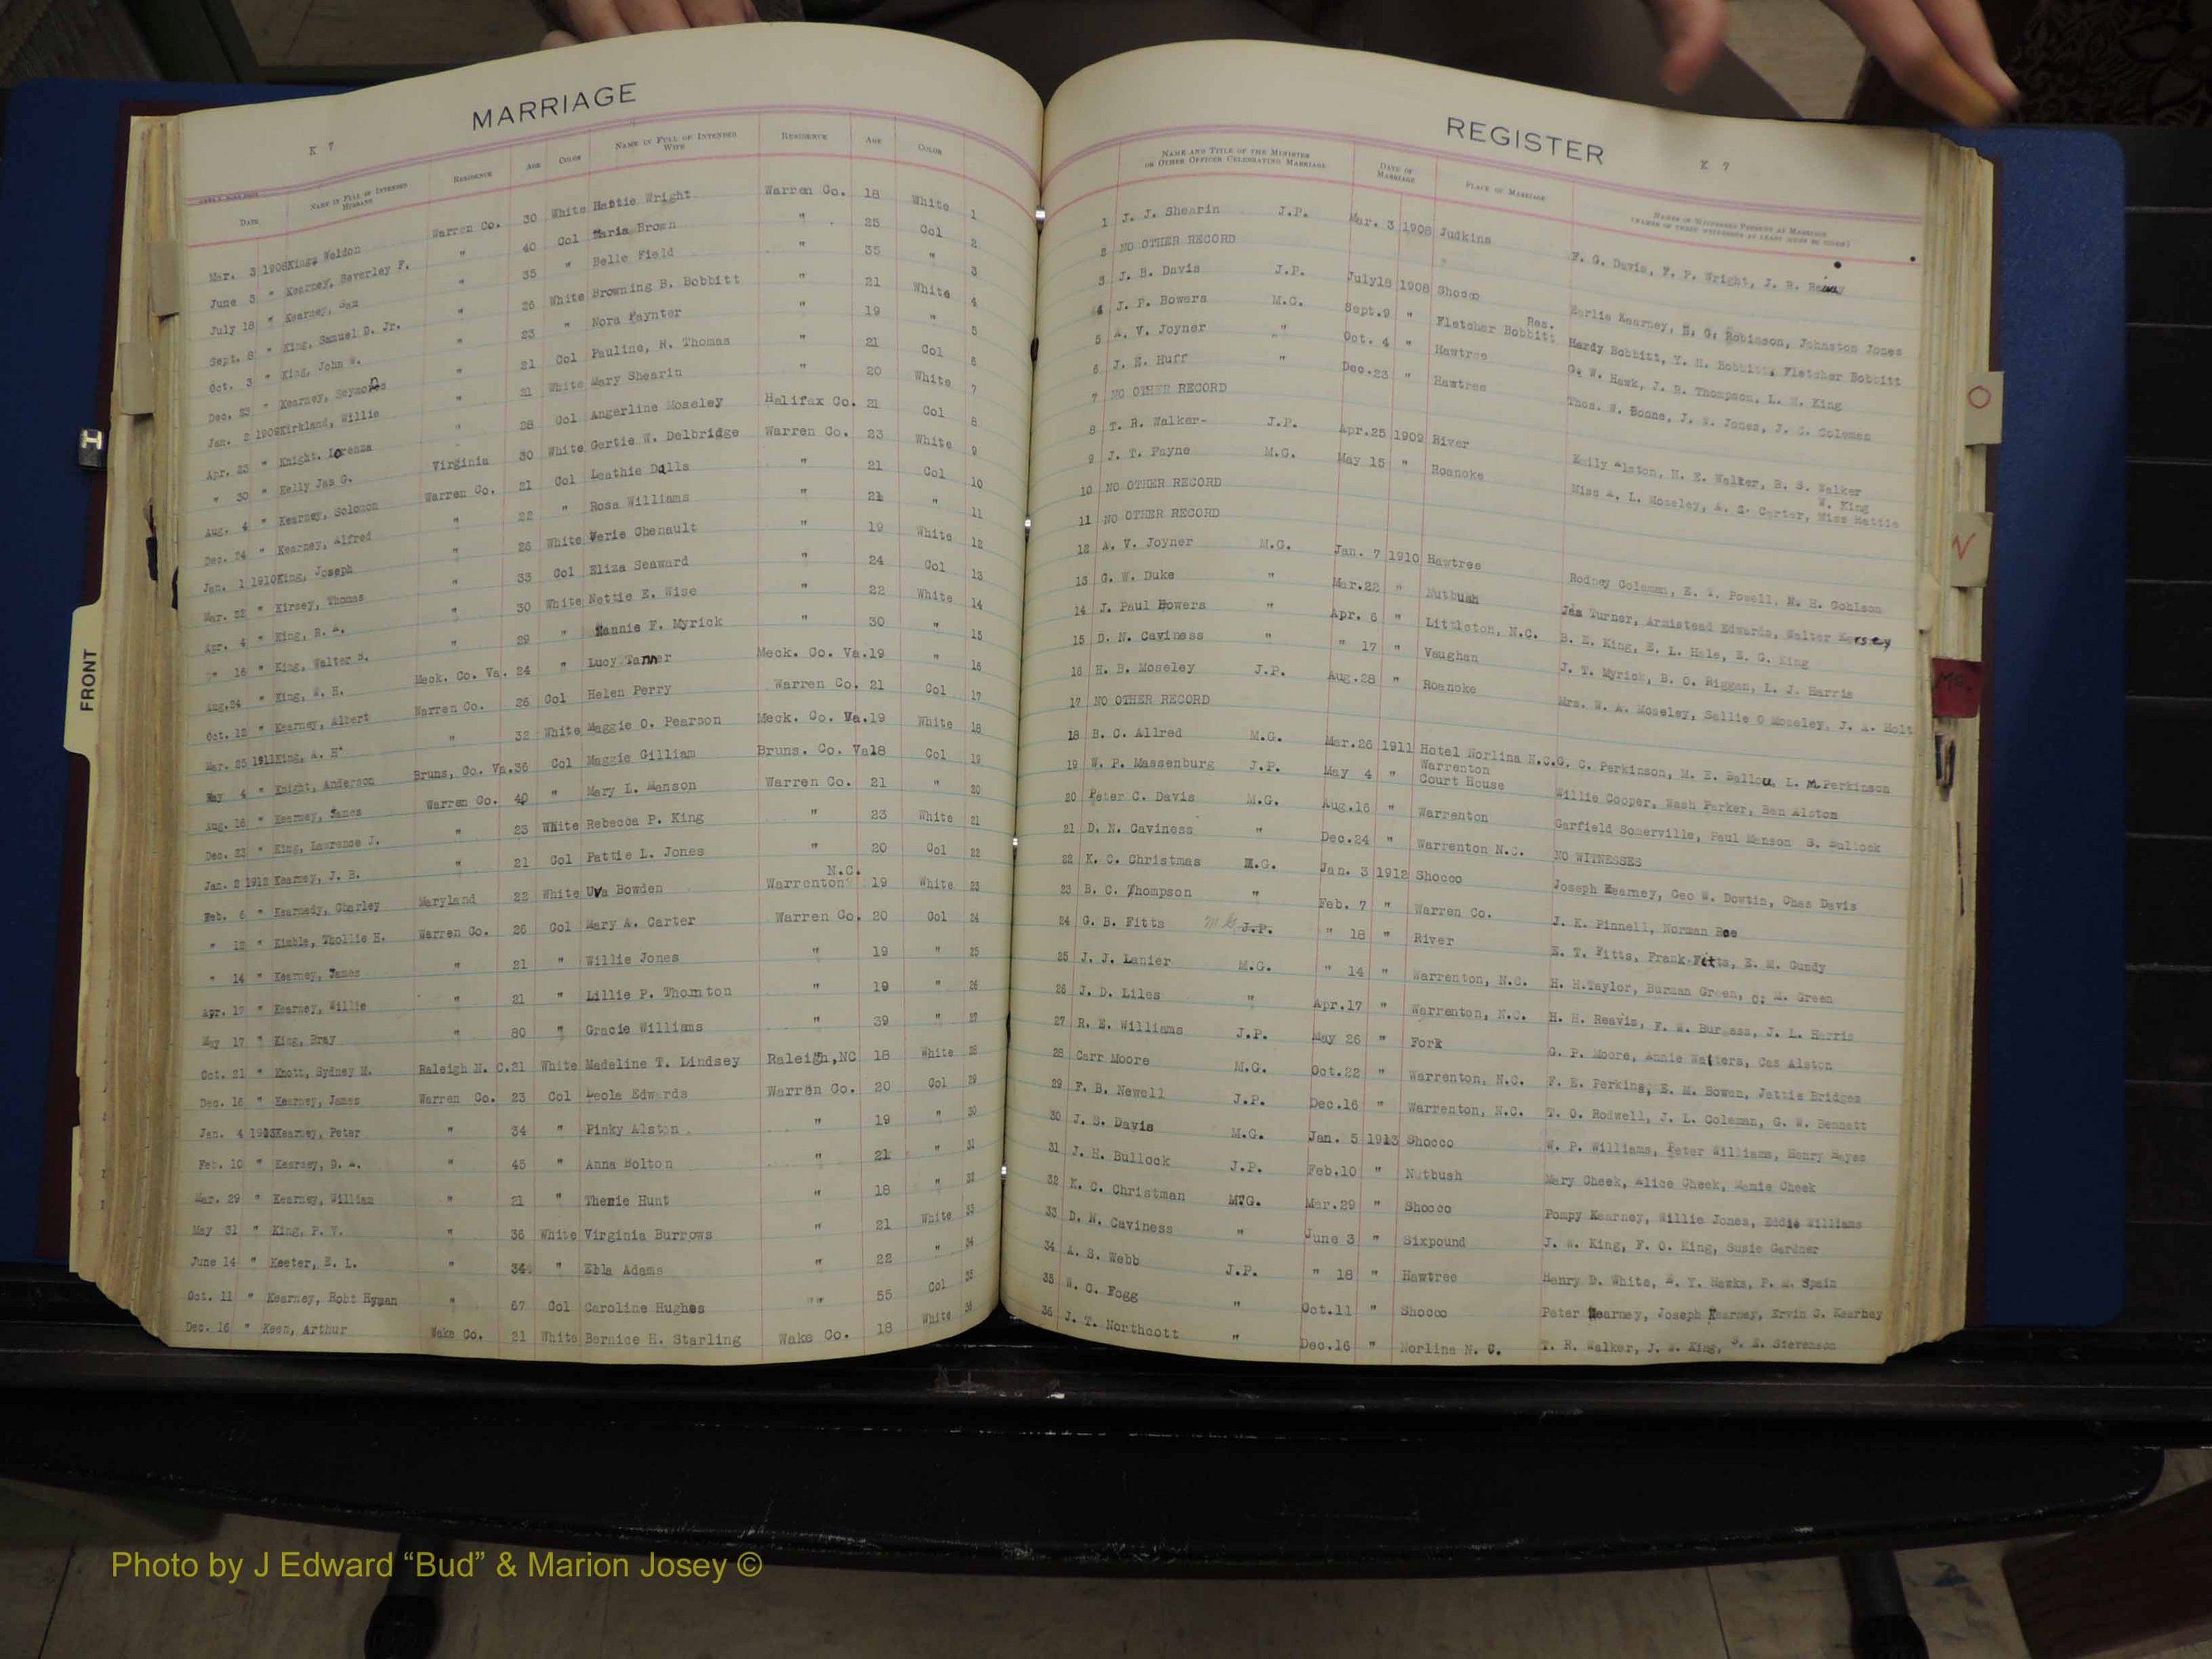 MARRIAGE
K 7
DATE NAME IN FULL OF INTENDED HUSBAND RESIDENCE AGE COLOR NAME IN FULL OF INTENDED WIFE RESIDENCE AGE COLOR
Mar. 3 1908 King, Weldon Warren Co. 30 White Hattie Wright Warren Co. 18 White 1
June 3 " Kearney, Beverley F. " 40 Col Maria Brown " 25 Col 2
July 18 " Kearney, Sam " 35 " Belle Field " 35 " 3
Sept. 8 " King, Samuel D. Jr. " 26 White Browning B. Bobbitt " 21 White 4
Oct. 3 " King, John W. " 23 " Nora Paynter " 19 " 5
Dec. 23 " Kearney, " 21 Col Pauline, N. Thomas " 21 Col 6
Jan. 2 1909 Kirkland, Willie " 21 White Mary Shearin " 20 White 7
Apr. 23 " Knight, Lorenza " 28 Col Angerline Moseley Halifax Co. 21 Col 8
" 30 " Kelly Jas G. Virginia 30 White Gertie W. Delbridge Warren Co. 23 White 9
Aug. 4 " Kearney, Solomon Warren Co. 21 Col Leathie Dalls " 21 Col 10
Dec. 24 " Kearney, Alfred " 22 " Rosa Williams " 21 " 11
Jan. 1 1910 King, Joseph " 26 White Verie Chenault " 19 White 12
Mar. 22 " Kirsey, Thomas " 33 Col Eliza Seaward " 24 Col 13
Apr. 4 " King, R. A. " 30 White Nettie E. Wise " 22 White 14
" 16 " King, Walter " 29 " Nannie F. Myrick " 30 " 15
Aug. 24 " King, W. H. Meck. Co. Va. 24 " Lucy Tanner Meck. Co. Va. 19 " 16
Oct. 12 " Kearney, Albert Warren Co. 26 Col Helen Perry Warren Co. 21 Col 17
Mar. 25 1911 King, A. H. " 32 White Maggie O. Pearson Meck. Co. Va. 19 White 18
May 4 " Knight, Anderson Bruns, Co. Va. 36 Col Maggie Gilliam Bruns. Co. Va 18 Col 19
Aug. 16 " Kearney, James Warren Co. 40 " Mary L. Manson Warren Co. 21 " 20
Dec. 23 " King, Lawrence J. " 23 White Rebecca P. King " 23 White 21
Jan. 2 1912 Kearney, J. B. " 21 Col Pattie L. Jones " 20 Col 22
Feb. 6 " Kearnedy, Charley Maryland 22 White Uva Bowden Warrenton N.C. 19 White 23
" 12 " Kimble, Thollie H. Warren Co. 26 Col Mary A. Carter Warren Co. 20 Col 24
" 14 " Kearney, James " 21 " Willie Jones " 19 " 25
Apr. 17 " Kearney, Willie " 21 " Lillie P. Thornton " 19 " 26
May 17 " King, Bray " 80 " Gracie Williams " 39 " 27
Oct. 21 " Knott, Sydney M. Raleigh N. C. 21 White Madeline T. Lindsey Raleigh, NC 18 White 28
Dec. 16 " Kearney, James Warren Co. 23 Col Leola Edwards Warren Co. 20 Col 29
Jan. 4 1913 Kearney, Peter " 34 " Pinky Alston " 19 " 30
Feb. 10 " Kearney, D. A. " 45 " Anna Bolton " 21 " 31
Mar. 29 " Kearney, William " 21 " Thenie Hunt " 18 " 32
May 31 " King, P. V. " 36 White Virginia Burrows " 21 White 33
June 14 " Keeter, E. L. " 34 " Ella Adams " 22 " 34
Oct. 11 " Kearney, Robt Hyman " 67 Col Caroline Hughes " 55 Col 35
Dec. 16 " Keen, Arthur Wake Co. 21 White Bernice H. Starling Wake Co. 18 White 36
REGISTER
K 7
NAME AND TITLE OF THE MINISTER OR OTHER OFFICER CELEBRATING MARRIAGE DATE OF MARRIAGE PLACE OF MARRIAGE NAMES OF WITNESSES PRESENT AT MARRIAGE
1 J. J. Shearin J.P. Mar. 3 1908 Judkins F. G. Davis, F. P. Wright, J. R.
2 NO OTHER RECORD
3 J. B. Davis J.P. July 18 1908 Shocco Earlie Kearney, B. G. Robinson, Johnston Jones
4 J. P. Bowers M.G. Sept. 9 " Res. Fletcher Bobbitt Hardy Bobbitt, Y. H. Bobbitt, Fletcher Bobbitt
5 A. V. Joyner " Oct. 4 " Hawtree G. W. Hawk, J. R. Thompson, L. H. King
6 J. E. Huff " Dec. 23 " Hawtree Thos. W. Bonne, J. W. Jones, J. C. Coleman
7 NO OTHER RECORD
8 T. R. Walker- J.P. Apr. 25 1909 River Emily Alston, H. E. Walker, B. S. Walker
9 J. T. Payne M.G. May 15 " Roanoke Miss A. L. Moseley, A. S. Carter, Miss Hattie W. King
10 NO OTHER RECORD
11 NO OTHER RECORD
12 A. V. Joyner M.G. Jan. 7 1910 Hawtree Rodney Coleman, E. T. Powell, M. H. Gohlson
13 G. W. Duke " Mar. 22 " Nutbush Jas Turner, Armistead Edwards, Walter Kersey
14 J. Paul Bowers " Apr. 6 " Littleton, N.C. B. E. King, E. L. Hale, E. G. King
15 D. N. Caviness " " 17 " Vaughan J. T. Myrick, B. O. Riggan, L. J. Harris
16 H. B. Moseley J.P. Aug. 28 " Roanoke Mrs. W. A. Moseley, Sallie O Moseley, J. A. Holt
17 NO OTHER RECORD
18 B. C. Allred M.G. Mar. 26 1911 Hotel Norlina N.C. G. C. Perkinson, M. E. Ballou, L. M. Perkinson
19 W. P. Massenburg J.P. May 4 " Warrenton Court House Willie Cooper, Wash Parker, Ben Alston
20 Peter C. Davis M.G. Aug. 16 " Warrenton Garfield Somerville, Paul Manson S. Bullock
21 D. N. Caviness " Dec. 24 " Warrenton N.C. NO WITNESSES
22 K. C. Christmas M.G. Jan. 3 1912 Shocco Joseph Kearney, Geo W. Dowtin, Chas Davis
23 B. C. Thompson " Feb. 7 " Warren Co. J. K. Pinnell, Norman Roe
24 G. B. Fitts M G J.P. " 18 " River E. T. Fitts, Frank Fitts, E. M. Gundy
25 J. J. Lanier M.G. " 14 " Warrenton, N.C. H. H. Taylor, Burman Green, C. M. Green
26 J. D. Liles " Apr. 17 " Warrenton, N.C. H. H. Reavis, F. W. Burgess, J. L. Harris
27 R. E. Williams J.P. May 26 " Fork G. P. Moore, Annie Watters, Cas Alston
28 Carr Moore M.G. Oct. 22 " Warrenton, N.C. F. E. Perkins, E. M. Bowen, Jettie Bridges
29 F. B. Newell J.P. Dec. 16 " Warrenton, N.C. T. O. Rodwell, J. L. Coleman, G. W. Bennett
30 J. B. Davis M.G. Jan. 5 1913 Shocco W. P. Williams, Peter Williams, Henry Hayes
31 J. H. Bullock J.P. Feb. 10 " Nutbush Mary Cheek, Alice Cheek, Mamie Cheek
32 K. C. Christman M.G. Mar. 29 " Shocco Pompy Kearney, Willie Jones, Eddie Williams
33 D. N. Caviness " June 3 " Sixpound J. W. King, F. O. King, Susie Gardner
34 A. S. Webb J.P. " 18 " Hawtree Henry D. White, E. Y. Hawks, P. M. Spain
35 W. C. Fogg " Oct. 11 " Shocco Peter Kearney, Joseph Kearney, Ervin G. Kearney
36 J. T. Northcott " Dec. 16 " Norlina N. C. T. R. Walker, J. W. King, J. E. Stevenson
FRONT
O
N
Mc
Photo by J Edward “Bud” & Marion Josey ©